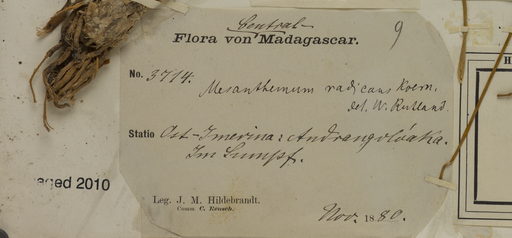 Central-
Flora von Madagascar.
9
No. 3714.
Mesanthemum radicans Koern.
det. W. Ruhland.
Statio Ost-Imerina: Andrangolóaka.
Im Sumpf.
aged 2010
Leg. J. M. Hildebrandt.
Comm. C. Rensch.
Nov. 1880.
H